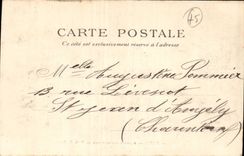 45
CARTE POSTALE
Ce côté est exclusivement réservé à l'adresse
Melle Augustine Pommier
13 rue
St Jean d'Angély
(Charente Inf)